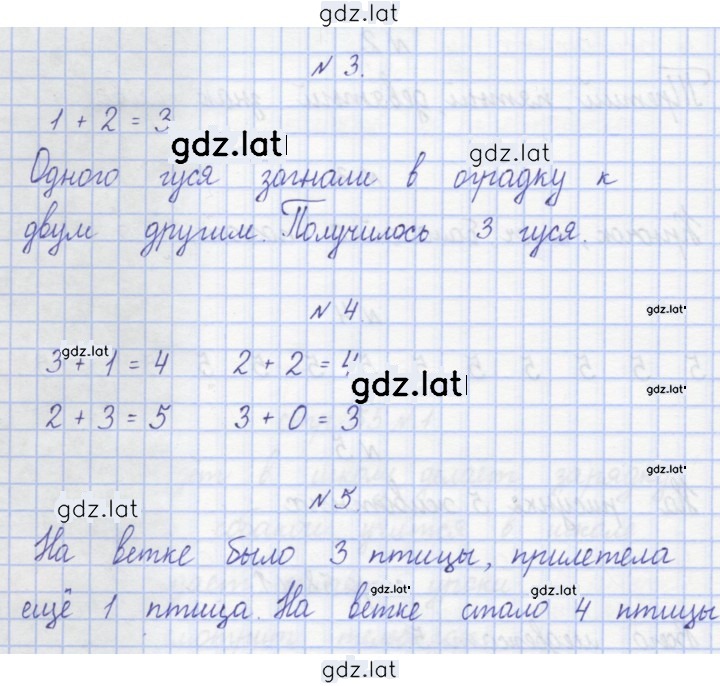 gdz.lat
№ 3.
1 + 2 = 3
gdz.lat
gdz.lat
Одного гуся загнали в оградку к
двум другим. Получилось 3 гуся.
№ 4
gdz.lat
gdz.lat
3 + 1 = 4 2 + 2 = 4
gdz.lat
gdz.lat
2 + 3 = 5 3 + 0 = 3
gdz.lat
№ 5
gdz.lat
На ветке было 3 птицы, прилетела
gdz.lat
gdz.lat
ещё 1 птица. На ветке стало 4 птицы
gdz.lat